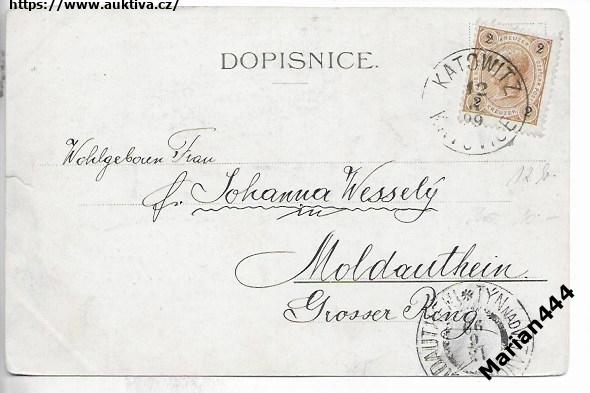 https://www.auktiva.cz/
DOPISNICE.
2 KREUZER 2
KATOWITZ
12
2
99
KATOVICE
Wohlgeboren Frau
Fr. Johanna Wessely
in
Moldauthein
Grosser Ring
12 b.
MOLDAUTHEIN * TÝN NAD
99
Marian444